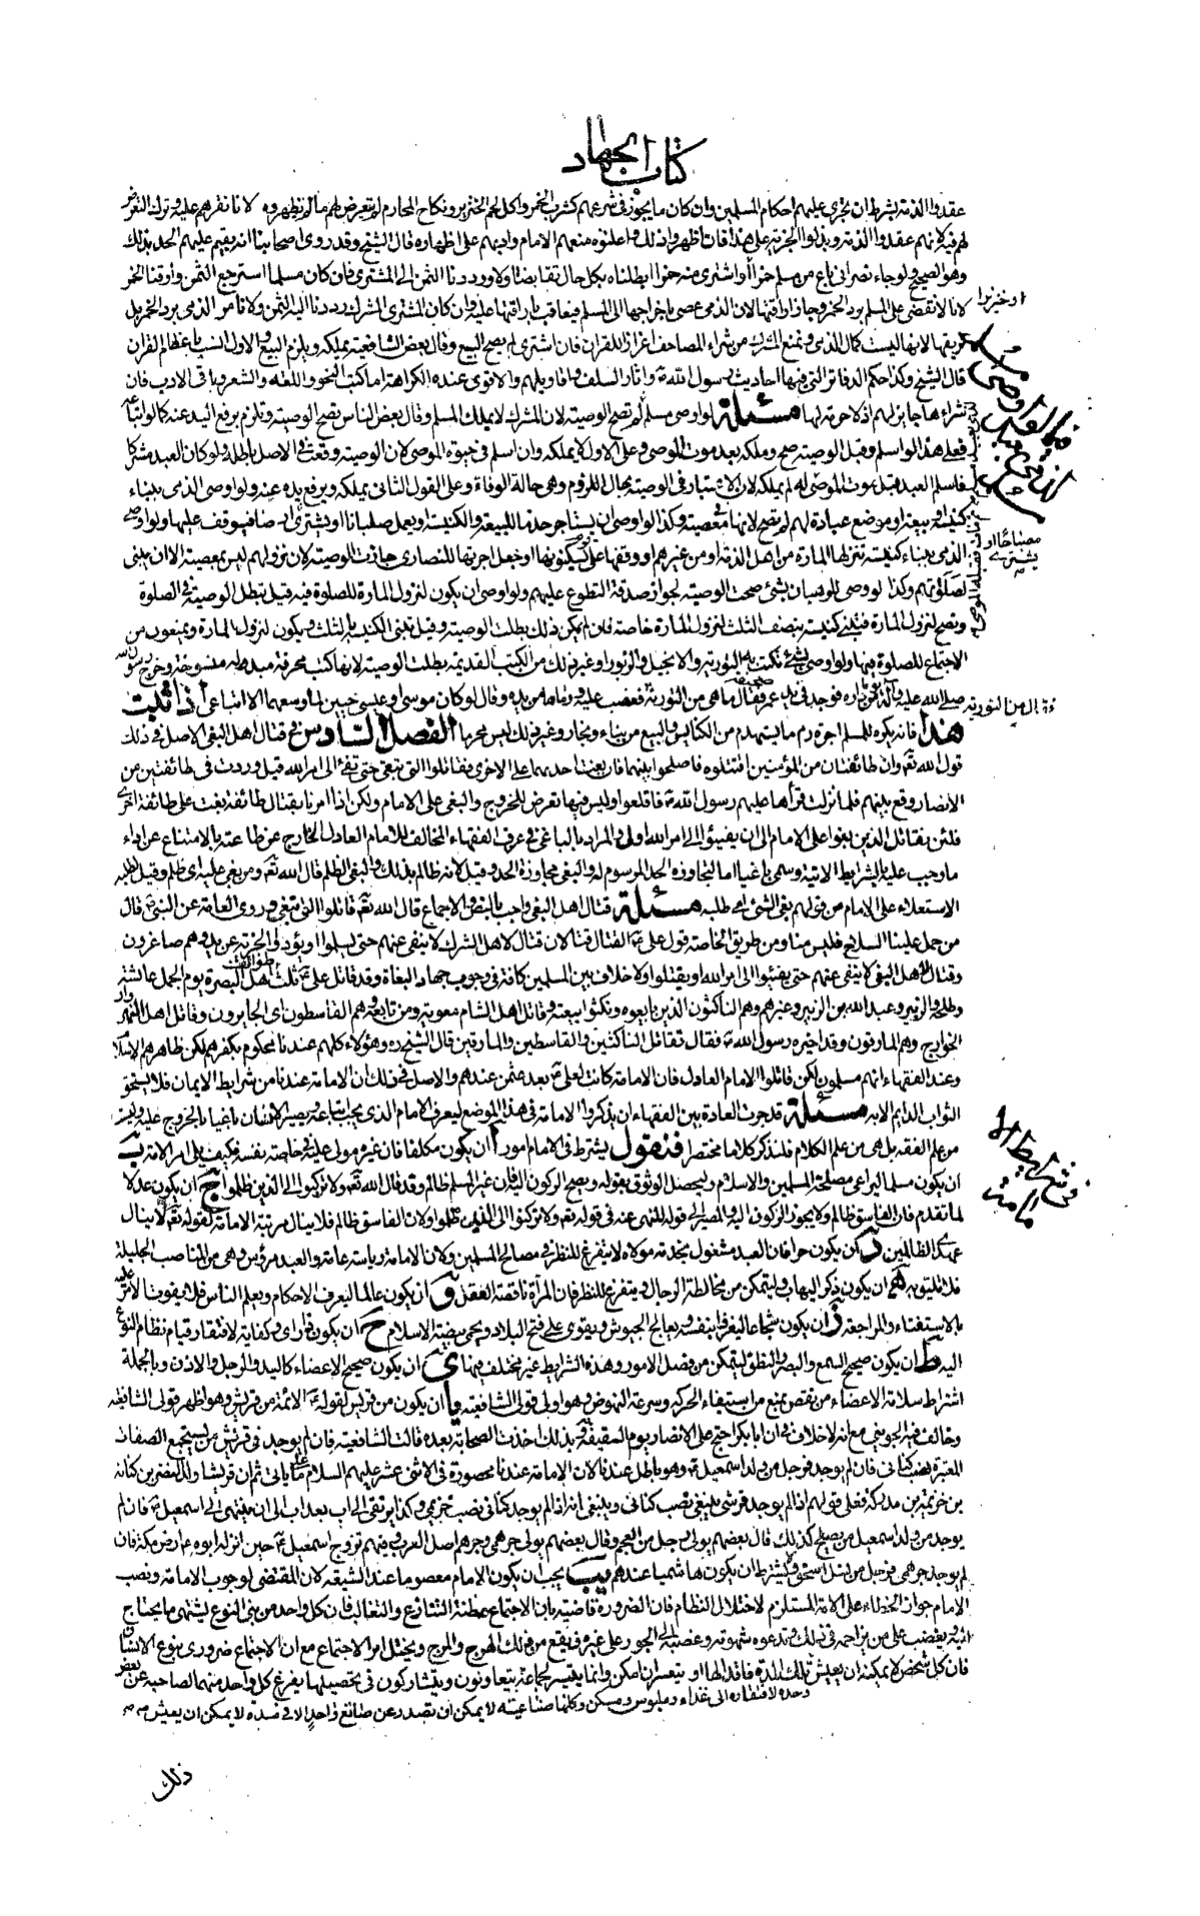 كتاب الجهاد
عقدوا الذمة بشرط ان يجرى عليهم احكام المسلمين وان كان مما يجوز فى شرعهم كشرب الخمر واكل لحم الخنزير ونكاح المحارم لم يتعرض لهم ما لم يظهروه لانا نقرهم عليه وترك التعرض
لهم فيه لانهم عقدوا الذمة وبذلوا الجزية على هذا فان اظهروا ذلك واعلنوه منعهم الامام وادبهم على اظهاره قال الشيخ وقد روى اصحابنا انه يقيم عليهم الحد بذلك
وهو الصحيح ولو جاء نصرانى باع من مسلم خمرا أو اشترى منه خمرا ابطلناه بكل حال تقابضا اولا ورددنا الثمن الى المشترى فان كان مسلما استرجع الثمن وارقنا الخمر
لانا لا نقضى على المسلم برد الخمر وجاز اراقتها لان الذمى عصى باخراجها الى المسلم فيعاقب باراقتها عليه وان كان المشترى المشرك رددنا اليه الثمن ولا نامر الذمى برد الخمر بل
نريقها لانها ليست كمال الذمى ونمنع المشرك من شراء المصاحف اعزازا للقران فان اشترى لم يصح البيع وقال بعض الشافعية يملكه ويلزم البيع والاول انسب باعظام القران
قال الشيخ وكذا حكم الدفاتر التى فيها احاديث رسول الله ص واثار السلف واقاويلهم والاقوى عنده الكراهة اما كتب النحو واللغة والشعر وباقى الادب فان
شراءها جايز لهم اذ لا حرمة لها مسئلة لو اوصى مسلم لم تصح الوصية لان المشرك لا يملك المسلم وقال بعض الناس تصح الوصية وتلزم برفع اليد عنه كما لو ابتاعه
فعلى هذا لو اسلم وقبل الوصية صح وملكه بعد موت الموصى وعلى الاول لا يملكه وان اسلم فى حيوة الموصى لان الوصية وقعت فى الاصل باطلة ولو كان العبد مشركا
فاسلم العبد قبل موت الموصى له لم يملكه لان الاعتبار فى الوصية بحال اللزوم وهى حالة الوفاة وعلى القول الثانى يملكه ويرفع يده عنه ولو اوصى الذمى ببناء
كنيسة او بيعة او موضع عبادة لهم لم تصح لانها معصية وكذا لو اوصى ان يستاجر خدما للبيعة والكنيسة ويعمل صلبانا او يشترى ارضا فيوقف عليها ولو اوصى
الذمى ببناء كنيسة تنزلها المارة من اهل الذمة او من غيرهم او وقفها على قوم يسكنونها او جعل اجرتها للنصارى جازت الوصية لان نزولهم ليس بمعصية الا ان يبنى
لصلوتهم وكذا لو وصى للرهبان بشئ صحت الوصية لجواز صدقة التطوع عليهم ولو اوصى ان يكون لنزول المارة للصلوة فيه قيل تبطل الوصية فى الصلوة
وتصح لنزول المارة فتبنى كنيسة بنصف الثلث لنزول المارة خاصة فان لم يمكن ذلك بطلت الوصية وقيل تبنى الكنيسة بالثلث فيكون لنزول المارة ويمنعون من
الاجتماع للصلوة فيها ولو اوصى بشئ تكتب به التورية والانجيل والزبور او غير ذلك من الكتب القديمة بطلت الوصية لانها كتب محرفة مبدلة منسوخة وخرج رسول الله
صلى الله عليه وآله يوما من داره فوجد فى يد عمر صحيفة فقال ما هى من التورية فغضب عليه ورماها من يده وقال لو كان موسى او عيسى حيين لما وسعهما الا اتباعى اذا ثبت
هذا فانه يكره للمسلم اجرة رم ما يستهدم من الكنائس والبيع من بناء ونجار وغير ذلك ليس محرما الفصل السادس فى قتال اهل البغى الاصل فى ذلك
قول الله تعه وان طائفتان من المؤمنين اقتتلوا فاصلحوا بينهما فان بغت احديهما على الاخرى فقاتلوا التى تبغى حتى تفئ الى امر الله قيل وردت فى طائفتين من
الانصار وقع بينهم فلما نزلت قراها عليهم رسول الله ص فاقلعوا وليس فيها تعرض للخروج والبغى على الامام ولكن اذا امرنا بقتال طائفة بغت على طائفة اخرى
فلئن نقاتل الذين بغوا على الامام الى ان يفيئوا الى امر الله اولى والمراد بالباغى فى عرف الفقهاء المخالف للامام العادل الخارج عن طاعته بالامتناع عن اداء
ما وجب عليه بالشرايط الاتية وسمى باغيا اما لتجاوزه الحد المرسوم له والبغى مجاوزة الحد وقيل لانه ظالم بذلك والبغى الظلم قال الله تعه ومن بغى عليه اى ظلم وقيل لطلبه
الاستعلاء على الامام من قولهم بغى الشئ اى طلبه مسئلة قتال اهل البغى واجب بالنص والاجماع قال الله تعه فقاتلوا التى تبغى وروى العامة عن النبى ص قال
من حمل علينا السلاح فليس منا ومن طريق الخاصة قول على ع القتال قتالان قتال لاهل الشرك لا ينفر عنهم حتى يسلموا او يؤدوا الجزية عن يد وهم صاغرون
وقتال لاهل البغى لا ينفر عنهم حتى يفيئوا الى امر الله او يقتلوا ولا خلاف بين المسلمين كافة فى وجوب جهاد البغاة وقد قاتل على ع ثلث طوائف اهل البصرة يوم الجمل عائشة
وطلحة والزبير وعبد الله بن الزبير وغيرهم وهم الناكثون الذين بايعوه ونكثوا بيعته وقاتل اهل الشام معوية ومن تابعه وهم القاسطون اى الجايرون وقاتل اهل النهروان
الخوارج وهم المارقون وقد اخبره رسول الله ص فقال تقاتل الناكثين والقاسطين والمارقين قال الشيخ ره وهؤلاء كلهم عندنا محكوم بكفرهم لكن ظاهرهم الاسلام
وعند الفقهاء انهم مسلمون لكن قاتلوا الامام العادل فان الامامة كانت لعلى ع بعد عثمن عندهم والاصل فى ذلك ان الامامة عندنا من شرايط الايمان فلا يستحق
الثواب الدايم الا به مسئلة قد جرت العادة بين الفقهاء ان يذكروا الامامة فى هذا الموضع ليعرف الامام الذى يجب اتباعه ويصير الانسان باغيا بالخروج عليه وليست
من علم الفقه بل هى من علم الكلام فلنذكر كلاما مختصرا فنقول يشترط فى الامام امور ا ان يكون مكلفا فان غيره مولى عليه فى خاصة نفسه فكيف يلى امر الامة ب
ان يكون مسلما ليراعى مصلحة المسلمين والاسلام وليحصل الوثوق بقوله ويصح الركون اليه فان غير المسلم ظالم وقد قال الله تعه ولا تركنوا الى الذين ظلموا ج ان يكون عدلا
لما تقدم فان الفاسق ظالم ولا يجوز الركون اليه والمصير الى قوله للنهى عنه فى قوله تعه ولا تركنوا الى الذين ظلموا ولان الفاسق ظالم فلا ينال مرتبة الامامة لقوله تعه لا ينال
عهدى الظالمين د ان يكون حرا فان العبد مشغول بخدمة مولاه لا يتفرغ للنظر فى مصالح المسلمين ولان الامامة رياسة عامة والعبد مرؤس وهى من المناصب الجليلة
فلا تليق به ه ان يكون ذكرا ليهاب وليتمكن من مخالطة الرجال ويتفرغ للنظر فان المرأة ناقصة العقل و ان يكون عالما ليعرف الاحكام ويعلم الناس فلا يفوت الامر عليه
بالاستفتاء والمراجعة ز ان يكون شجاعا ليغزو بنفسه ويعالج الجيوش ويقوى على فتح البلاد ويحمى بيضة الاسلام ح ان يكون ذا راى وكفاية لافتقار قيام نظام النوع
اليه ط ان يكون صحيح السمع والبصر والنطق ليتمكن من فصل الامور وهذه الشرايط غير مختلف فيها ى ان يكون صحيح الاعضاء كاليد والرجل والاذن وبالجملة
اشتراط سلامة الاعضاء من نقص يمنع من استيفاء الحركة وسرعة النهوض وهو اولى قولى الشافعية يا ان يكون من قريش لقوله ع الائمة من قريش وهو اظهر قولى الشافعية
وخالف فيه الجوينى مع انه لا خلاف فى ان ابا بكر احتج على الانصار يوم السقيفة به وبذلك اخذت الصحابة بعده قالت الشافعية فان لم يوجد فى قريش من يستجمع الصفات
المعتبرة نصب كنانى فان لم يوجد فرجل من ولد اسمعيل ع وهو باطل عندنا لان الامامة عندنا محصورة فى الاثنى عشر عليهم السلام على ما ياتى ثم ان قريشا ولد النضر بن كنانة
بن خزيمة بن مدركة فعلى قولهم اذا لم يوجد قرشى ينبغى نصب كنانى وينبغى انه اذا لم يوجد كنانى نصب خزيمى وكذا يرتقى الى اب بعد اب الى ان ينتهى الى اسمعيل ع فان لم
يوجد من ولد اسمعيل من يصلح لذلك قال بعضهم يولى رجل من العجم وقال بعضهم يولى جرهمى وجرهم اصل العرب وفيهم تزوج اسمعيل ع حين انزله ابوه ع ارض مكة فان
لم يوجد جرهمى فرجل من نسل اسحق ولا يشترط ان يكون هاشميا عندهم يب يجب ان يكون الامام معصوما عند الشيعة لان المقتضى لوجوب الامامة ونصب
الامام جواز الخطاء على الامة المستلزم لاختلال النظام فان الضرورة قاضية بان الاجتماع مظنة التنازع والتغالب فان كل واحد من بنى النوع يشتهى ما يحتاج
اليه ويغضب على من يزاحمه فى ذلك وتدعوه شهوته وغضبه الى الجور على غيره فيقع من ذلك الهرج والمرج ويختل امر الاجتماع مع ان الاجتماع ضرورى لنوع الانسان
فان كل شخص لا يمكنه ان يعيش تلك المدة فاقدا لها او يتعسر ان امكن وانما يتيسر لجماعة يتعاونون ويتشاركون فى تحصيلها يفرغ كل واحد منهم لصاحبه عن بعض
وحده لافتقاره الى غذاء وملبوس ومسكن وكلها صناعية لا يمكن ان تصدر عن صانع واحد الا فى مدة لا يمكن ان يعيش
ذلك
او خنزيرا
مصباحا او
يشترى